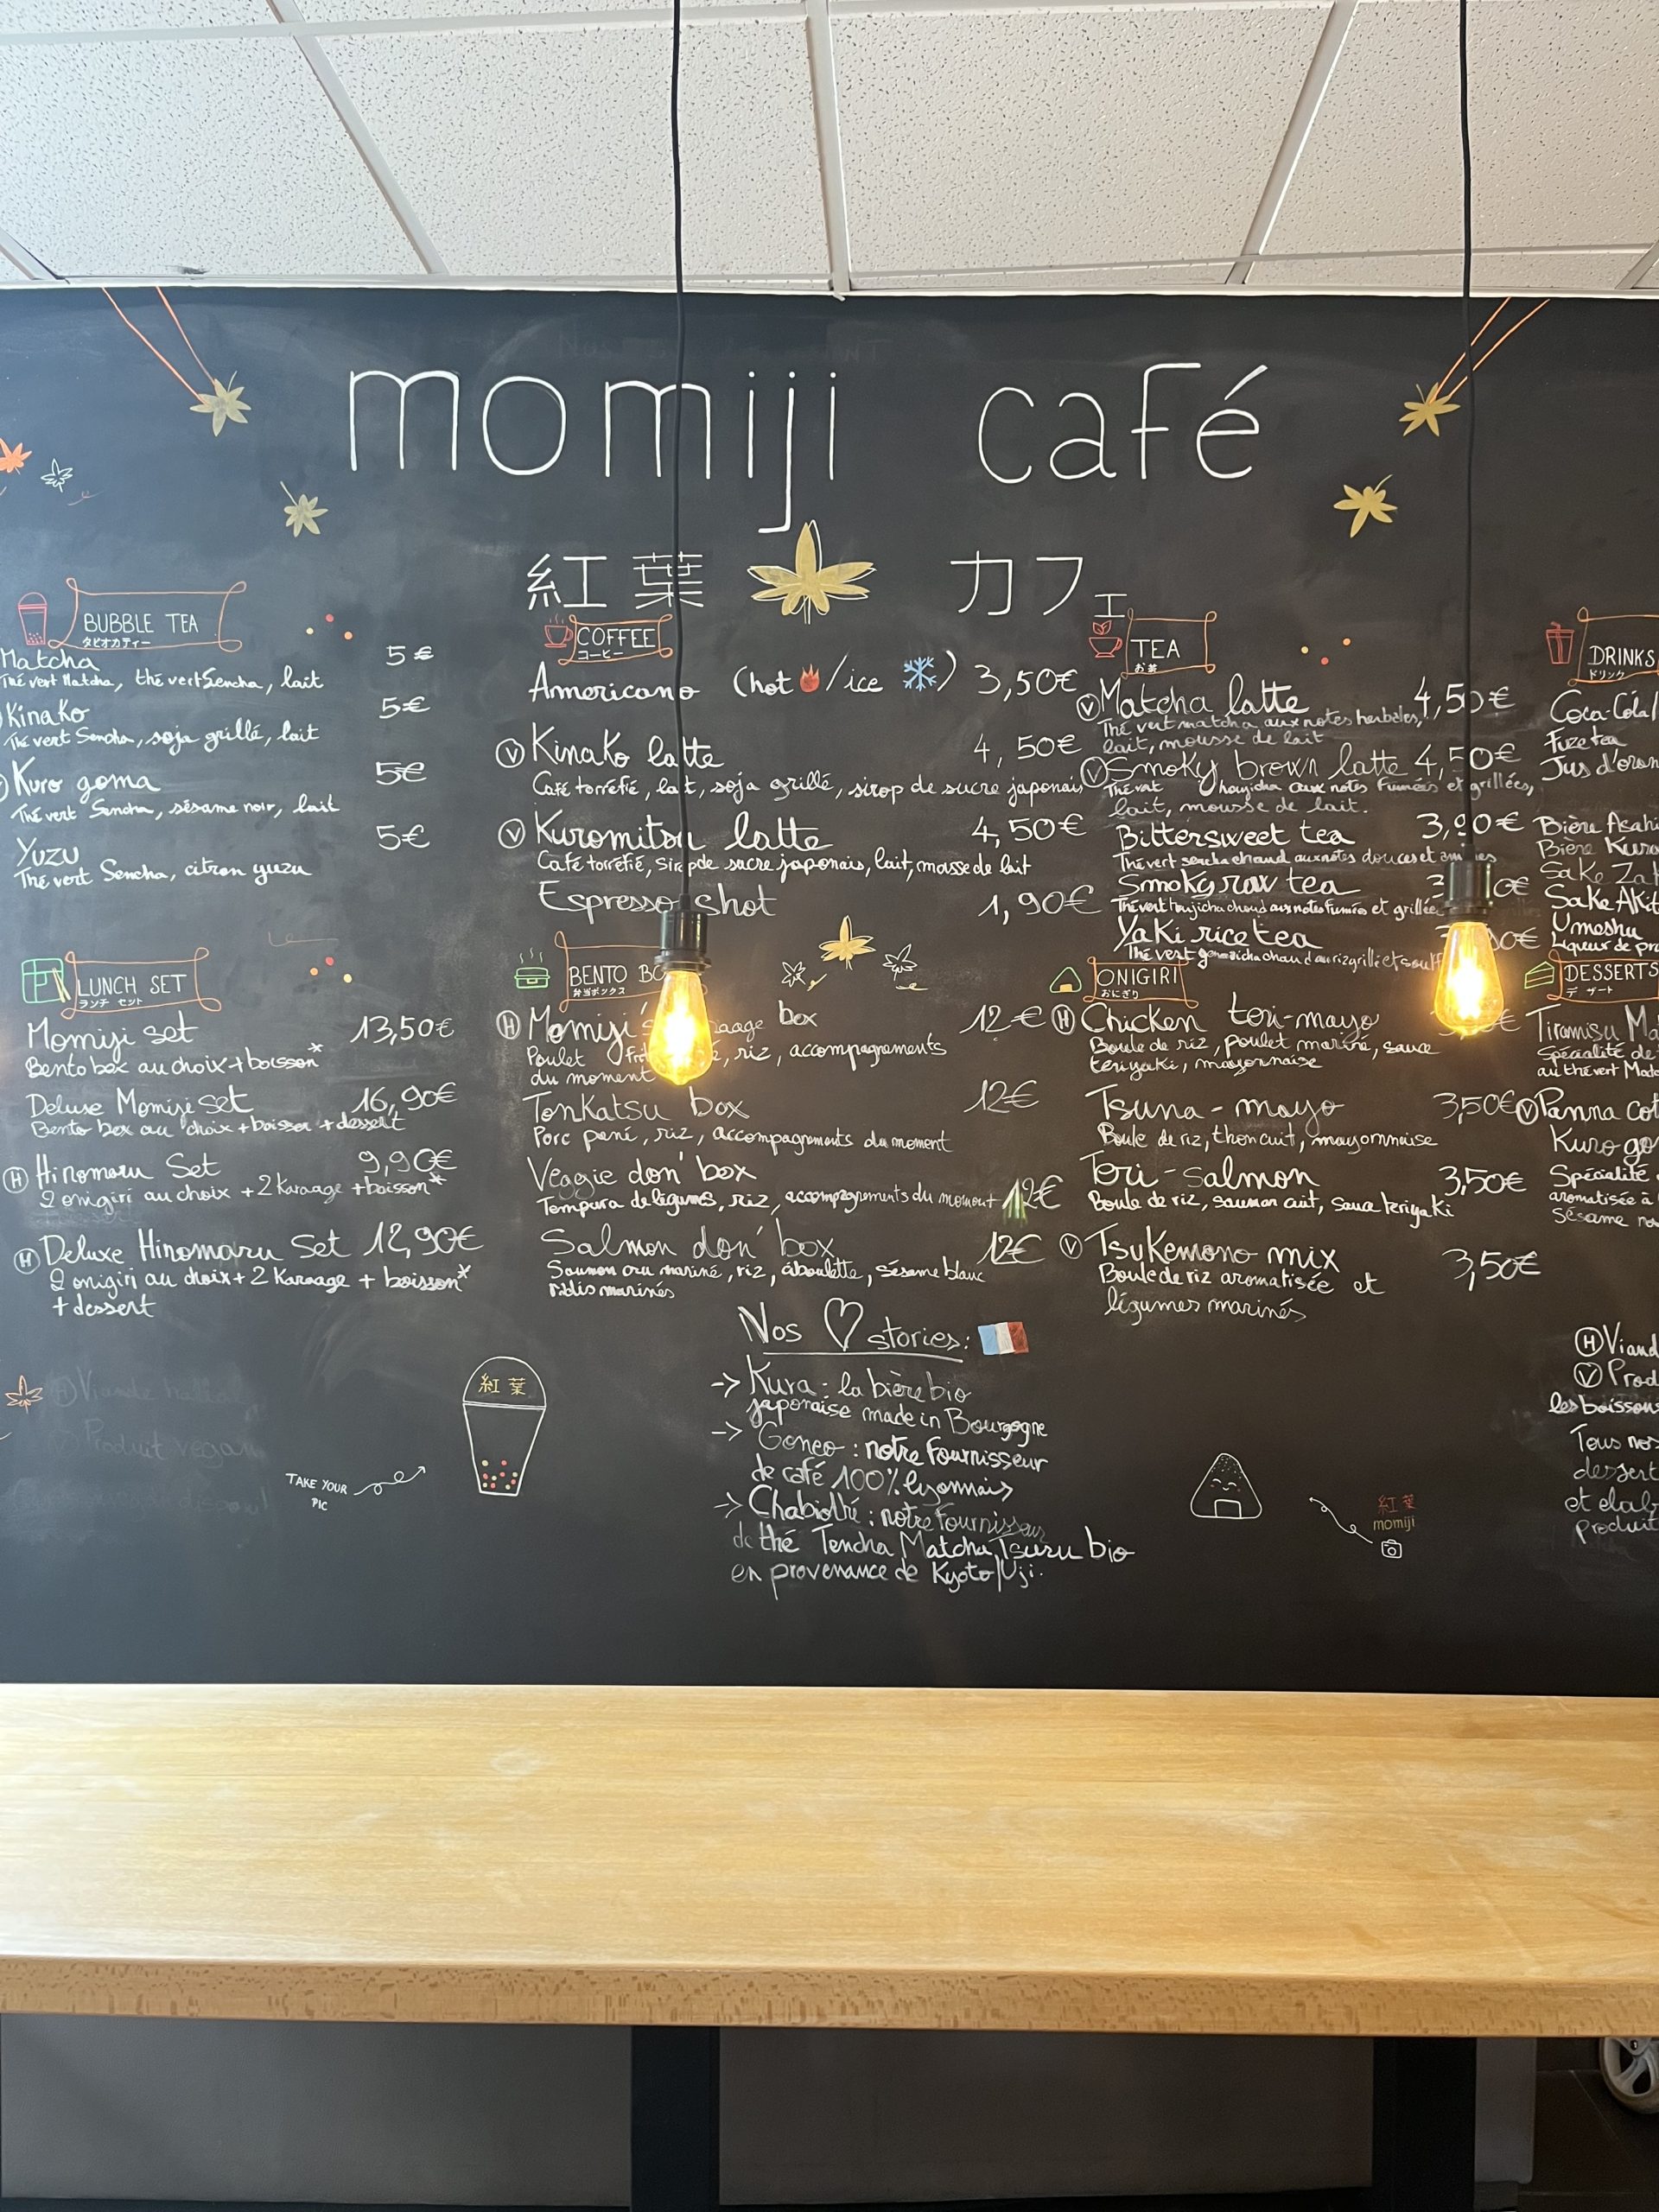 momiji café
紅葉 カフェ
BUBBLE TEA
タピオカティー
Matcha 5€
Thé vert Matcha, thé vert Sencha, lait
Kinako 5€
Thé vert Sencha, soja grillé, lait
Kuro goma 5€
Thé vert Sencha, sésame noir, lait
Yuzu 5€
Thé vert Sencha, citron yuzu
COFFEE
コーヒー
Americano (hot /ice ) 3,50€
V Kinako latte 4,50€
Café torréfié, lait, soja grillé, sirop de sucre japonais
V Kuromitsu latte 4,50€
Café torréfié, sirop de sucre japonais, lait, mousse de lait
Espresso shot 1,90€
TEA
お茶
V Matcha latte 4,50€
Thé vert matcha aux notes herbales,
lait, mousse de lait
V Smoky brown latte 4,50€
Thé vert houjicha aux notes fumées et grillées,
lait, mousse de lait.
Bittersweet tea 3,90€
Thé vert sencha chaud aux notes douces et
Smoky raw tea
Thé vert houjicha chaud aux notes fumées et
Yaki rice tea
Thé vert genmaicha chaud au riz grillé et
DRINKS
ドリンク
Coca-Cola/
Fuze tea
Jus d'oran
Bière Asahi
Bière Kura
Sake
Sake Akit
Umeshu
Liqueur de pr
LUNCH SET
ランチ セット
Momiji set 13,50€
Bento box au choix + boisson*
Deluxe Momiji set 16,90€
Bento box au choix + boisson + dessert
H Hinomaru Set 9,90€
2 onigiri au choix + 2 Karaage + boisson*
H Deluxe Hinomaru Set 12,90€
2 onigiri au choix + 2 Karaage + boisson*
+ dessert
BENTO BO
弁当ボックス
H Momiji's aage box 12€
Poulet , riz, accompagnements
du moment
Tonkatsu box 12€
Porc pané, riz, accompagnements du moment
Veggie don' box
Tempura de légumes, riz, accompagnements du moment 12€
Salmon don' box 12€
Saumon cru mariné, riz, ciboulette, sésame blanc
radis marinés
ONIGIRI
おにぎり
H Chicken tori-mayo
Boule de riz, poulet mariné, sauce
teriyaki, mayonnaise
Tsuna-mayo 3,50€
Boule de riz, thon cuit, mayonnaise
Tori-salmon 3,50€
Boule de riz, saumon cuit, sauce teriyaki
V Tsukemono mix 3,50€
Boule de riz aromatisée et
légumes marinés
DESSERTS
デザート
Tiramisu Ma
Spécialité de
au thé vert Matc
V Panna cot
Kuro go
Spécialité
aromatisée à
sésame no
Nos stories:
-> Kura : la bière bio
japonaise made in Bourgogne
-> Goneo : notre fournisseur
de café 100% lyonnais
-> Chabiothé : notre fournisseur
de thé Tencha Matcha Tsuru bio
en provenance de Kyoto/Uji.
Viande
Produit vegan
紅葉
TAKE YOUR
PIC
紅葉
momiji
H Viand
V Prod
les boisson
Tous nos
dessert
et elab
produit